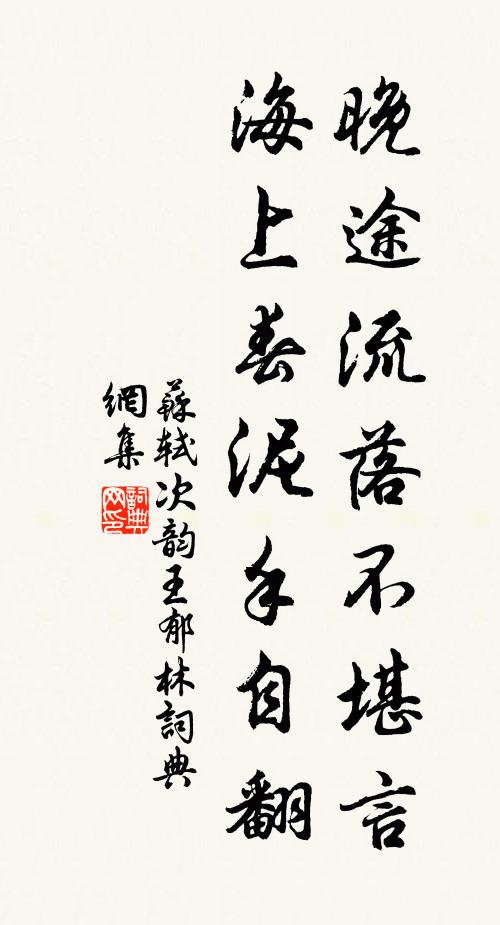 晚途流落不堪言
海上春泥手自翻
蘇軾次韵王郁林詞典
網集
詞典
网印